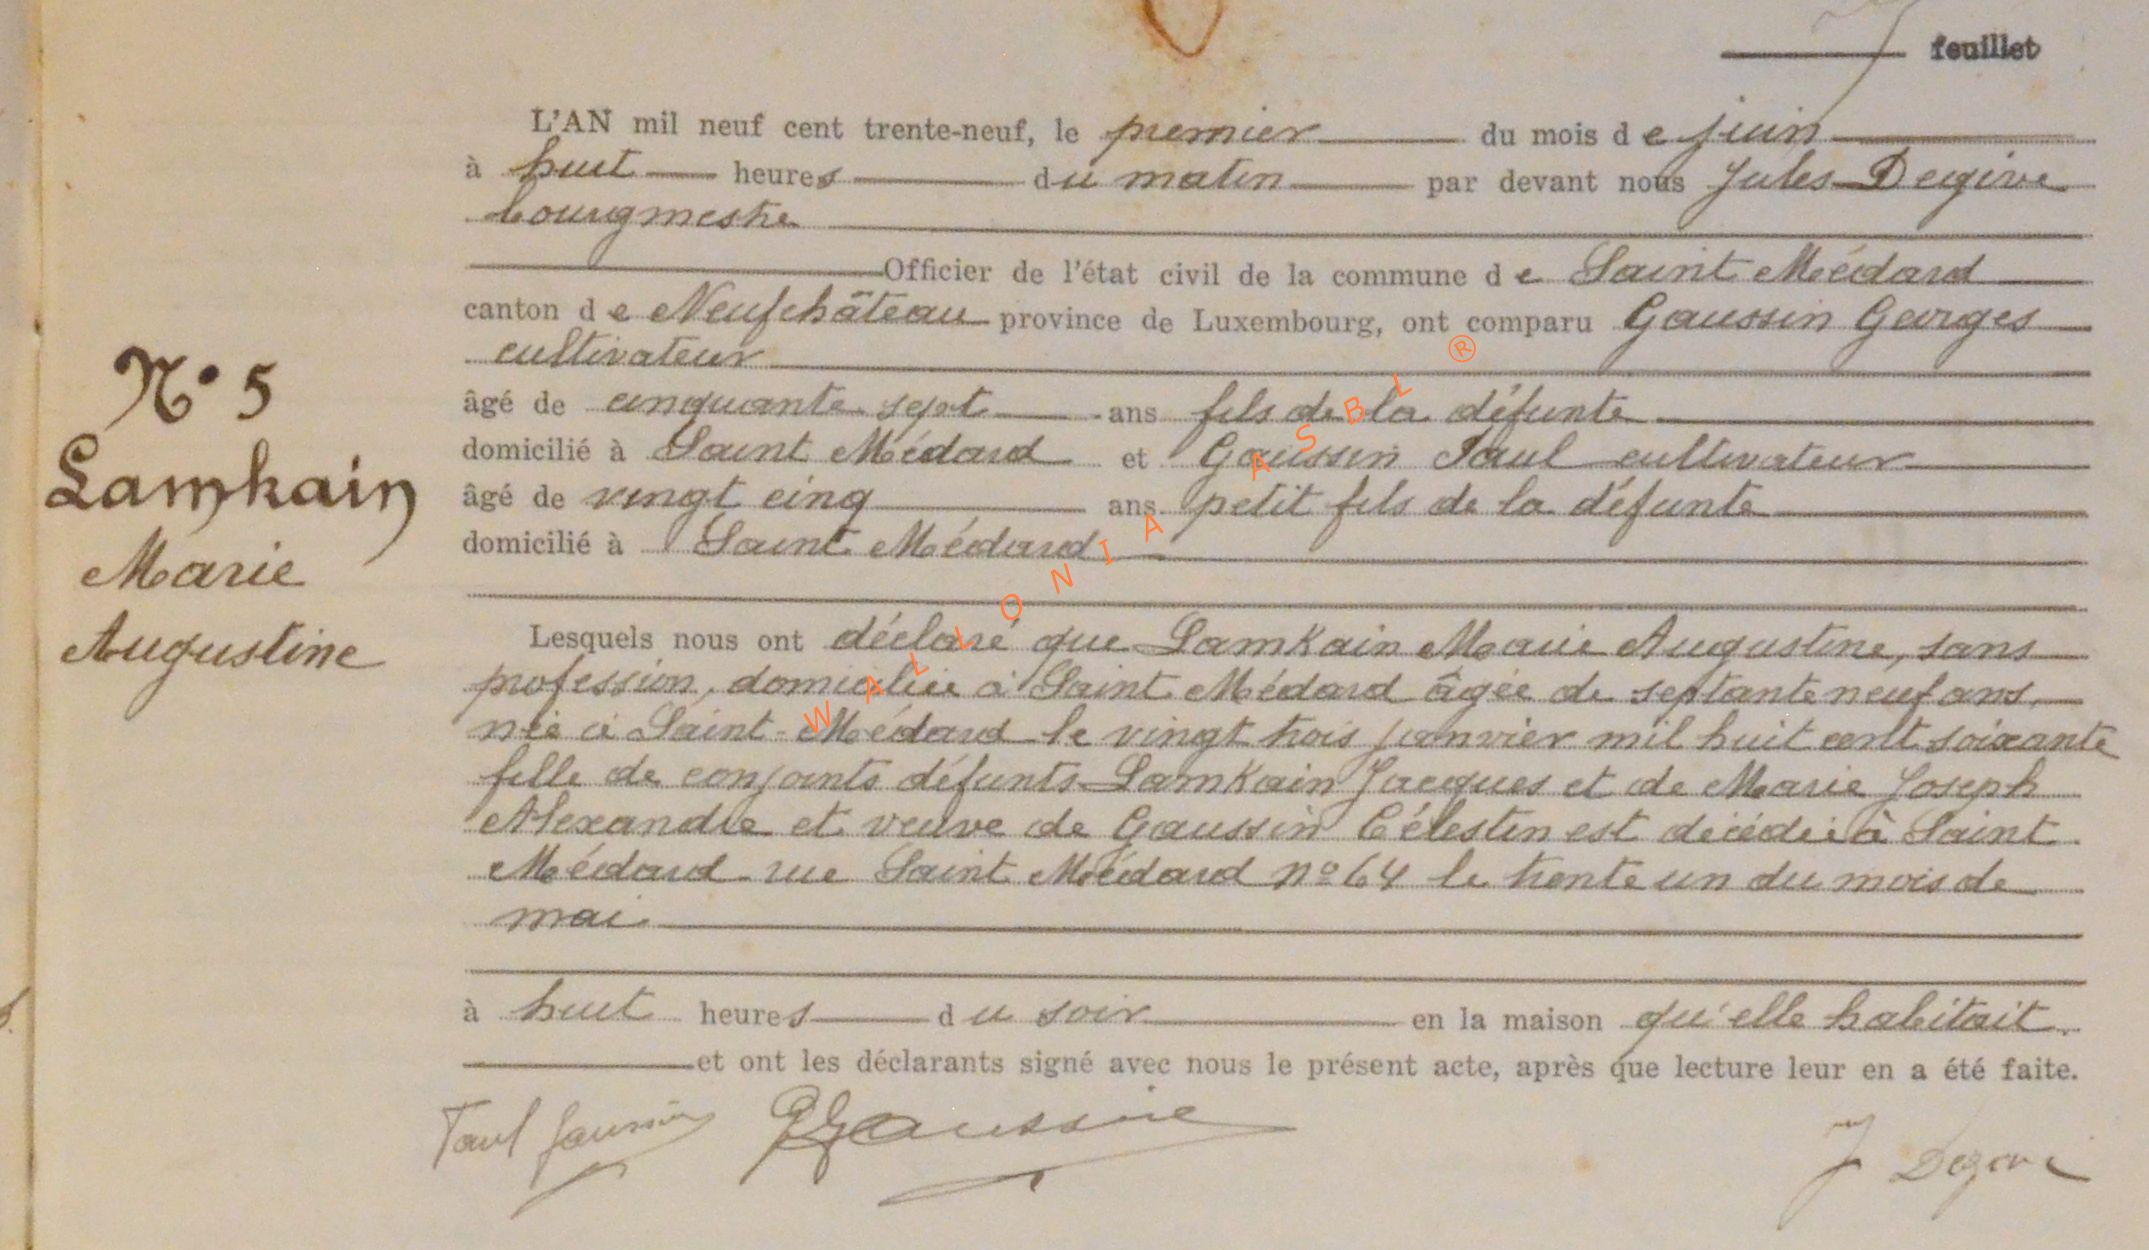 feuillet
L'AN mil neuf cent trente-neuf, le premier du mois de juin
à huit heures du matin par devant nous Jules Degive
bourgmestre
Officier de l'état civil de la commune de Saint Médard
canton de Neufchâteau province de Luxembourg, ont comparu Gaussin Georges
cultivateur
âgé de cinquante sept ans fils de la défunte
domicilié à Saint Médard et Gaussin Paul cultivateur
âgé de vingt cinq ans petit fils de la défunte
domicilié à Saint Médard
N° 5
Lamkain
Marie
Augustine
Lesquels nous ont déclaré que Lamkain Marie Augustine, sans
profession, domiciliée à Saint Médard âgée de septante neuf ans,
née à Saint-Médard le vingt trois janvier mil huit cent soixante
fille de conjoints défunts Lamkain Jacques et de Marie Joseph
Alexandre et veuve de Gaussin Célestin est décédée à Saint
Médard rue Saint Médard n° 64 le trente un du mois de
mai
à huit heures du soir en la maison qu'elle habitait.
et ont les déclarants signé avec nous le présent acte, après que lecture leur en a été faite.
Paul Gaussin GGaussin J Degive
WALLONIA ASBL ®